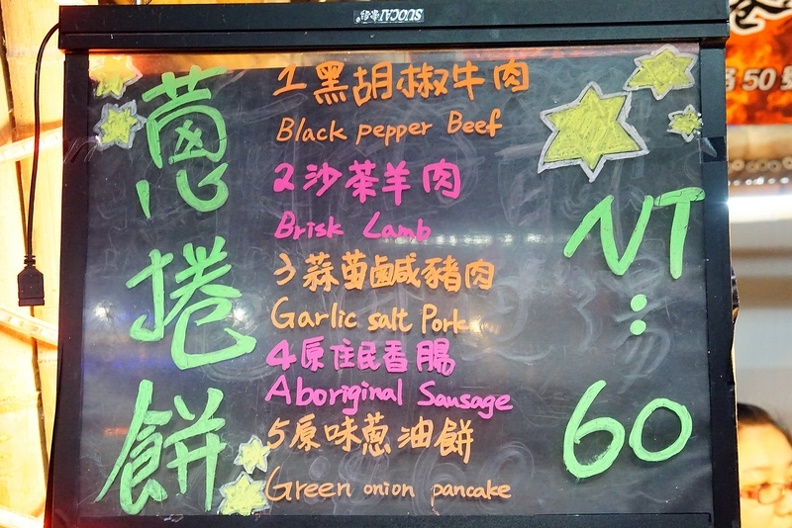 SUOCAI索彩®
蔥捲餅
1黑胡椒牛肉
Black pepper Beef
2沙茶羊肉
Brisk Lamb
3蒜苗鹹豬肉
Garlic salt Pork
4原住民香腸
Aboriginal Sausage
5原味蔥油餅
Green onion pancake
NT:
60
50